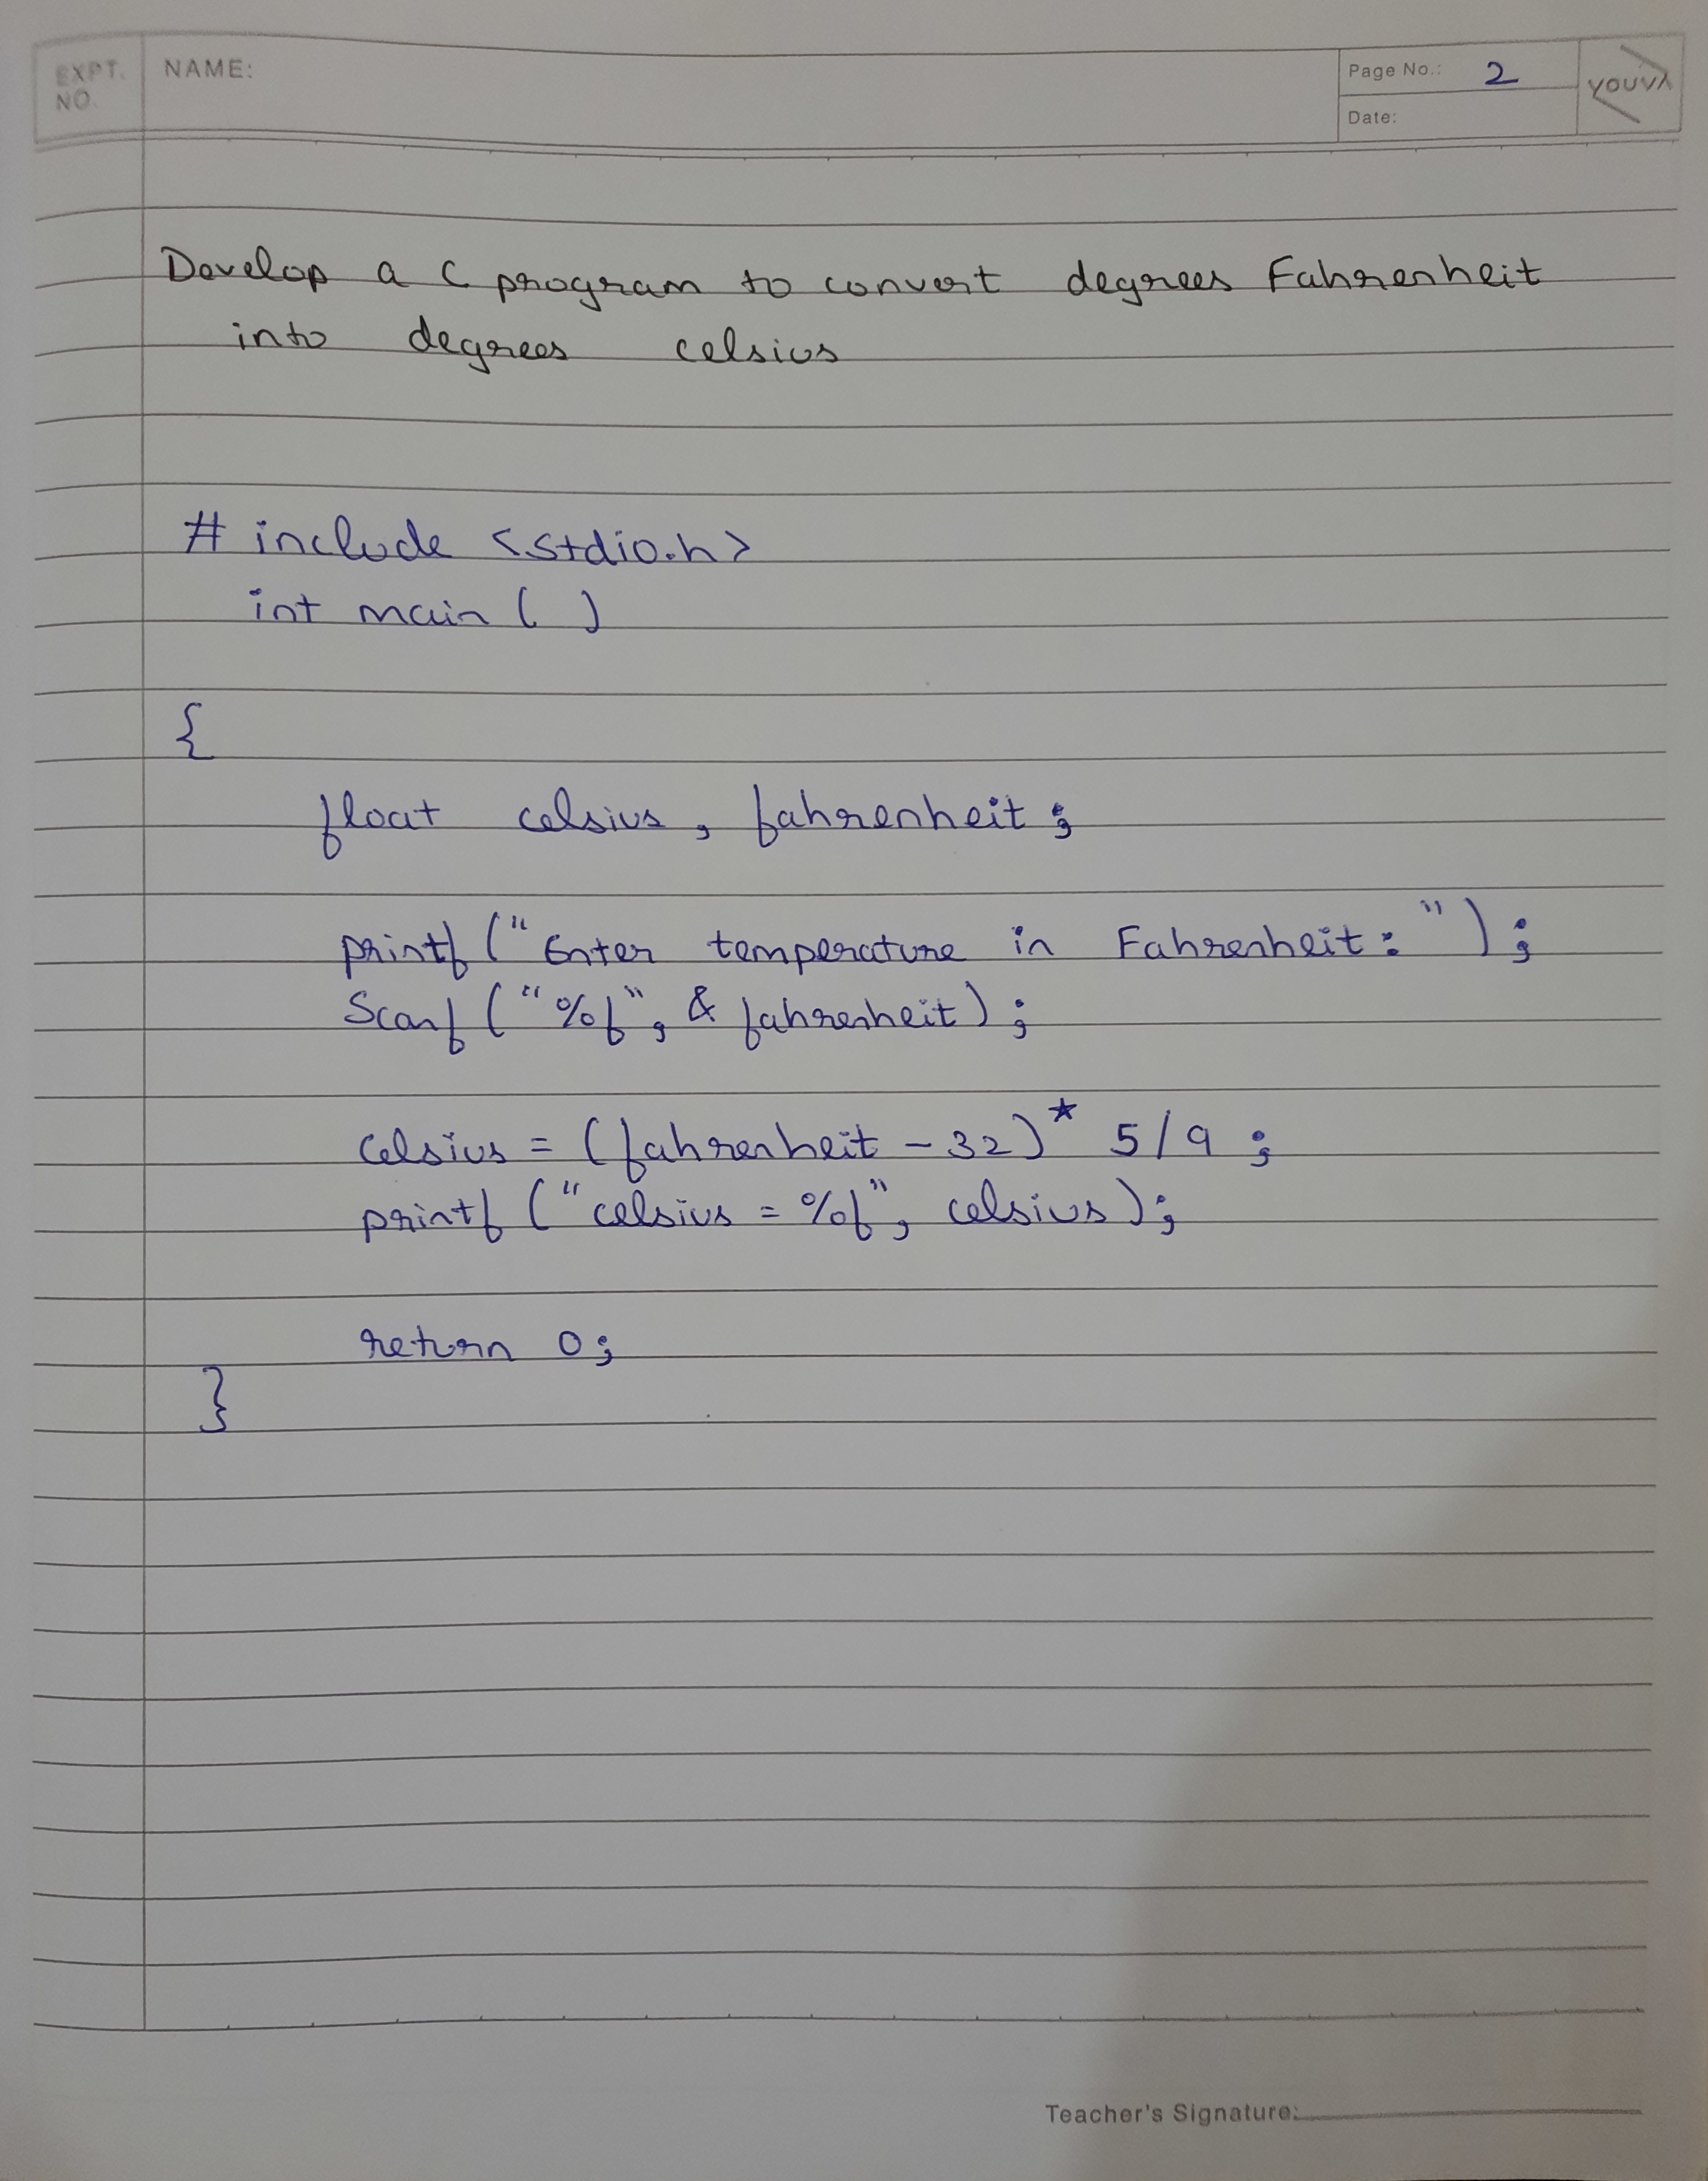 EXPT. NO.
NAME:
Page No.: 2
Date:
YOUVA
Develop a C program to convert degrees Fahrenheit
into degrees celsius
# include <stdio.h>
int main ( )
{
float celsius, fahrenheit;
printf ("Enter temperature in Fahrenheit: ");
Scanf ("%f", & fahrenheit);
Celsius = (fahrenheit - 32) * 5/9 ;
printf ("celsius = %f", celsius);
return 0;
}
Teacher's Signature: